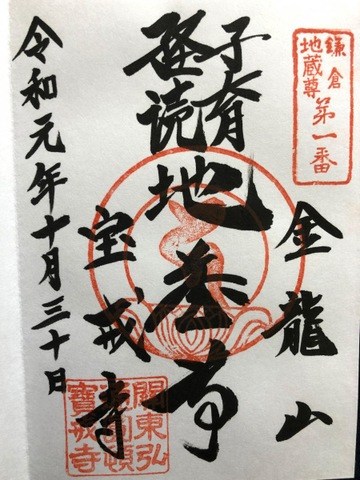 鎌倉
地蔵尊
第一番
金龍山
子育
経読
地蔵尊
宝戒寺
令和元年十月三十日
關東弘
寶戒寺